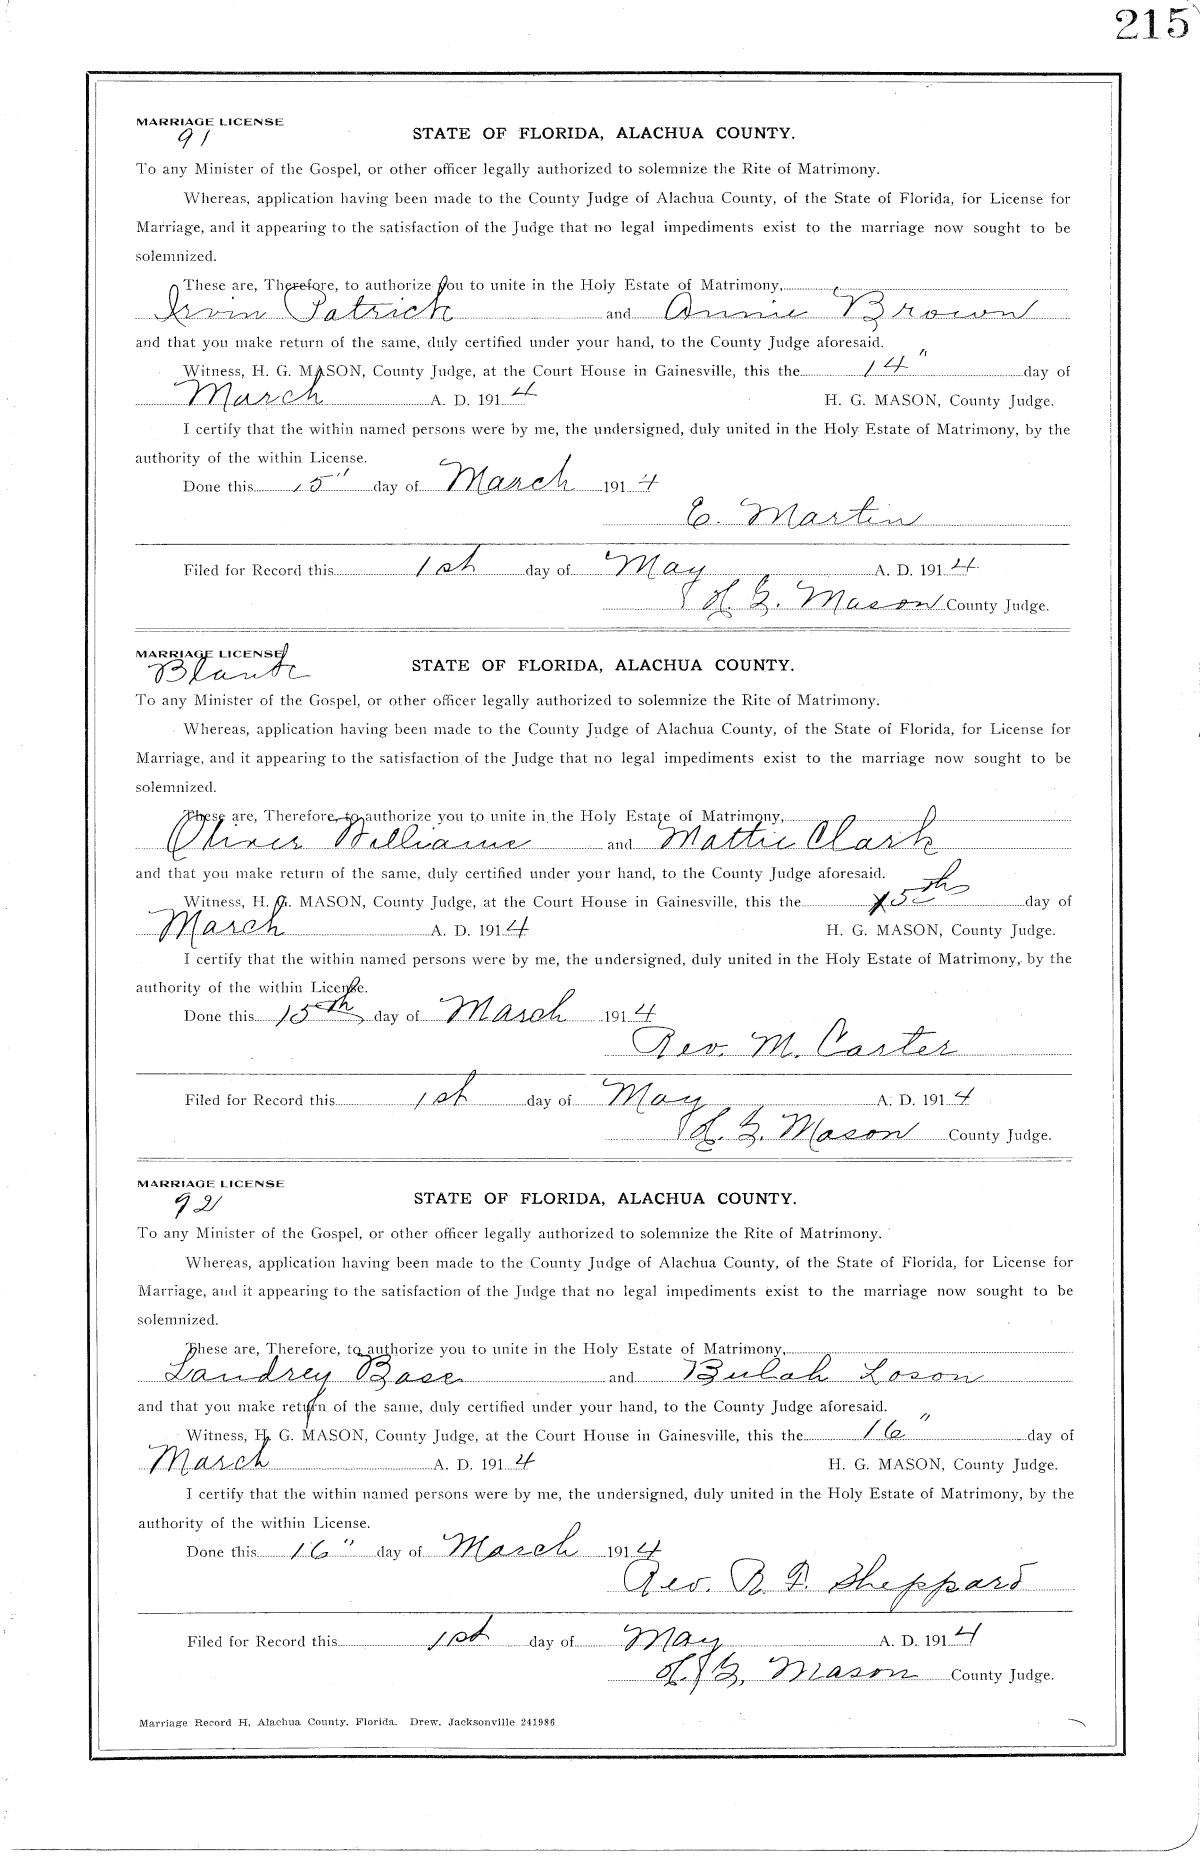 215
MARRIAGE LICENSE
91
STATE OF FLORIDA, ALACHUA COUNTY.
To any Minister of the Gospel, or other officer legally authorized to solemnize the Rite of Matrimony.
Whereas, application having been made to the County Judge of Alachua County, of the State of Florida, for License for
Marriage, and it appearing to the satisfaction of the Judge that no legal impediments exist to the marriage now sought to be
solemnized.
These are, Therefore, to authorize you to unite in the Holy Estate of Matrimony,
Irvin Patrick and Annie Brown
and that you make return of the same, duly certified under your hand, to the County Judge aforesaid.
Witness, H. G. MASON, County Judge, at the Court House in Gainesville, this the 14" day of
March A. D. 1914 H. G. MASON, County Judge.
I certify that the within named persons were by me, the undersigned, duly united in the Holy Estate of Matrimony, by the
authority of the within License.
Done this 15" day of March 1914
E. Martin
Filed for Record this 1st day of May A. D. 1914
H. G. Mason County Judge.
MARRIAGE LICENSE
Blank
STATE OF FLORIDA, ALACHUA COUNTY.
To any Minister of the Gospel, or other officer legally authorized to solemnize the Rite of Matrimony.
Whereas, application having been made to the County Judge of Alachua County, of the State of Florida, for License for
Marriage, and it appearing to the satisfaction of the Judge that no legal impediments exist to the marriage now sought to be
solemnized.
These are, Therefore, to authorize you to unite in the Holy Estate of Matrimony,
Oliver Williams and Mattie Clark
and that you make return of the same, duly certified under your hand, to the County Judge aforesaid.
Witness, H. G. MASON, County Judge, at the Court House in Gainesville, this the 15th day of
March A. D. 1914 H. G. MASON, County Judge.
I certify that the within named persons were by me, the undersigned, duly united in the Holy Estate of Matrimony, by the
authority of the within License.
Done this 15th day of March 1914
Rev. M. Carter
Filed for Record this 1st day of May A. D. 1914
H. G. Mason County Judge.
MARRIAGE LICENSE
92
STATE OF FLORIDA, ALACHUA COUNTY.
To any Minister of the Gospel, or other officer legally authorized to solemnize the Rite of Matrimony.
Whereas, application having been made to the County Judge of Alachua County, of the State of Florida, for License for
Marriage, and it appearing to the satisfaction of the Judge that no legal impediments exist to the marriage now sought to be
solemnized.
These are, Therefore, to authorize you to unite in the Holy Estate of Matrimony,
Landrey Base and Bulah Loson
and that you make return of the same, duly certified under your hand, to the County Judge aforesaid.
Witness, H. G. MASON, County Judge, at the Court House in Gainesville, this the 16" day of
March A. D. 1914 H. G. MASON, County Judge.
I certify that the within named persons were by me, the undersigned, duly united in the Holy Estate of Matrimony, by the
authority of the within License.
Done this 16" day of March 1914
Rev. Sheppard
Filed for Record this 1st day of May A. D. 1914
H. G. Mason County Judge.
Marriage Record H, Alachua County, Florida. Drew, Jacksonville 241986